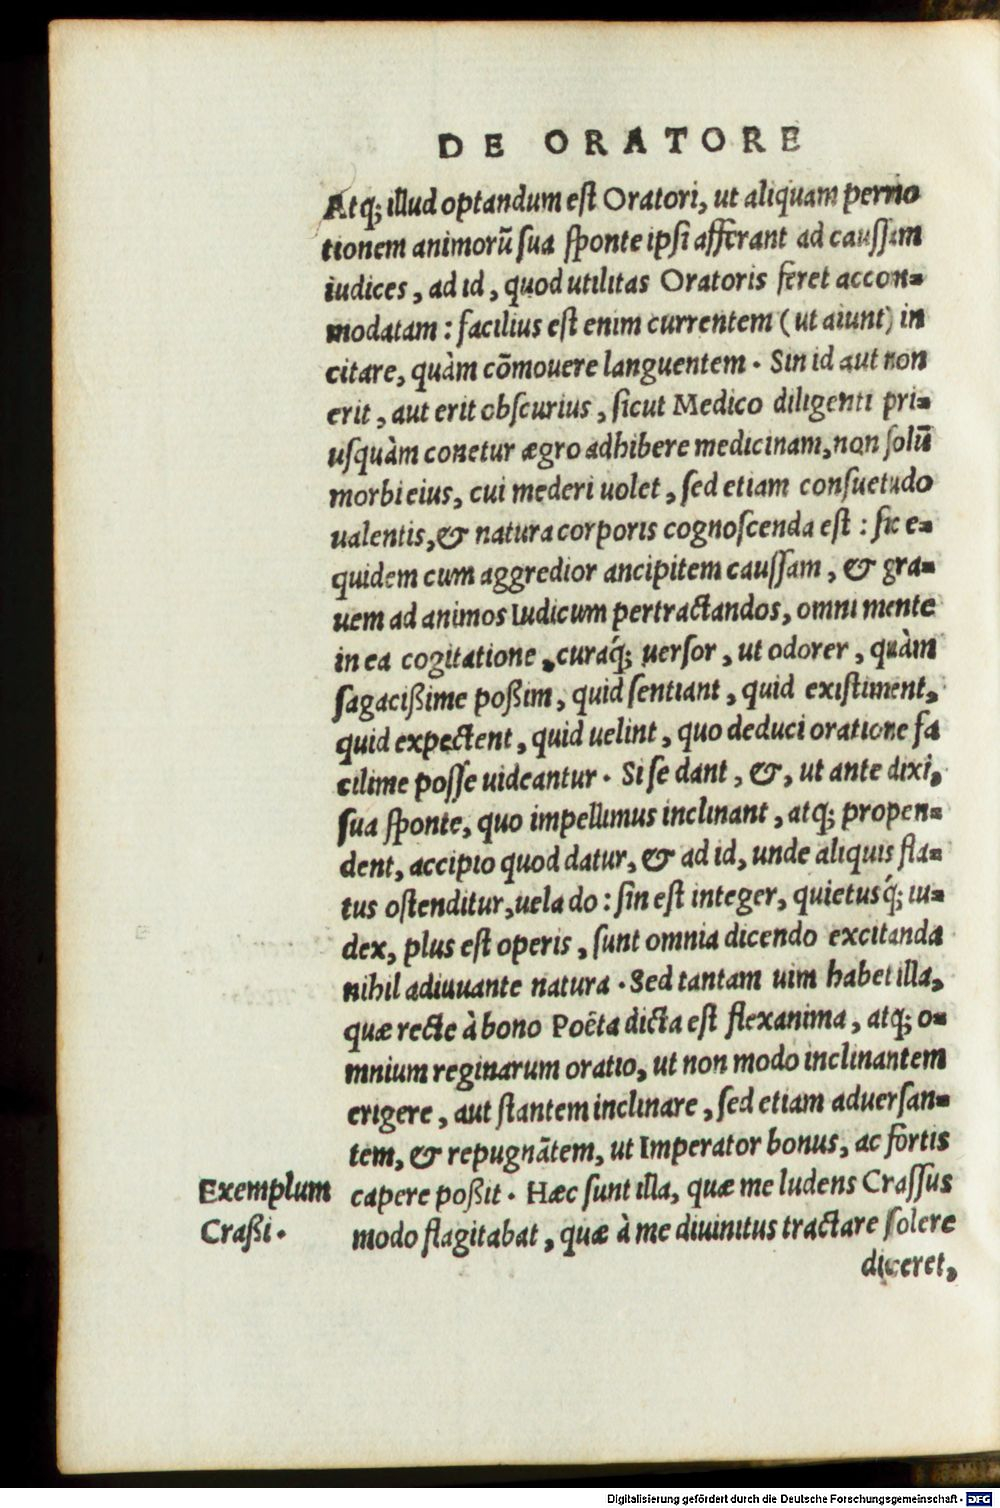 DE ORATORE
Atq; illud optandum est Oratori, ut aliquam permo
tionem animorũ sua sponte ipsi afferant ad caussam
iudices, ad id, quod utilitas Oratoris feret accon=
modatam : facilius est enim currentem (ut aiunt) in
citare, quàm cõmouere languentem. Sin id aut non
erit, aut erit obscurius, sicut Medico diligenti pri=
usquàm conetur ægro adhibere medicinam, non solũ
morbi eius, cui mederi uolet, sed etiam consuetudo
ualentis, & natura corporis cognoscenda est : sic e=
quidem cum aggredior ancipitem caussam, & gra=
uem ad animos Iudicum pertractandos, omni mente
in ea cogitatione, curaq́; uersor, ut odorer, quàm
sagacißime poßim, quid sentiant, quid existiment,
quid expectent, quid uelint, quo deduci oratione fa
cilime posse uideantur. Si se dant, &, ut ante dixi,
sua sponte, quo impellimus inclinant, atq; propen=
dent, accipio quod datur, & ad id, unde aliquis fla=
tus ostenditur, uela do : sin est integer, quietusq́; iu=
dex, plus est operis, sunt omnia dicendo excitanda
nihil adiuuante natura. Sed tantam uim habet illa,
quæ recte à bono Poëta dicta est flexanima, atq; o=
mnium reginarum oratio, ut non modo inclinantem
erigere, aut stantem inclinare, sed etiam aduersan=
tem, & repugnãtem, ut Imperator bonus, ac fortis
capere poßit. Hæc sunt illa, quæ me ludens Crassus
modo flagitabat, quæ à me diuinitus tractare solere
diceret,
Exemplum
Craßi.
Digitalisierung gefördert durch die Deutsche Forschungsgemeinschaft - DFG